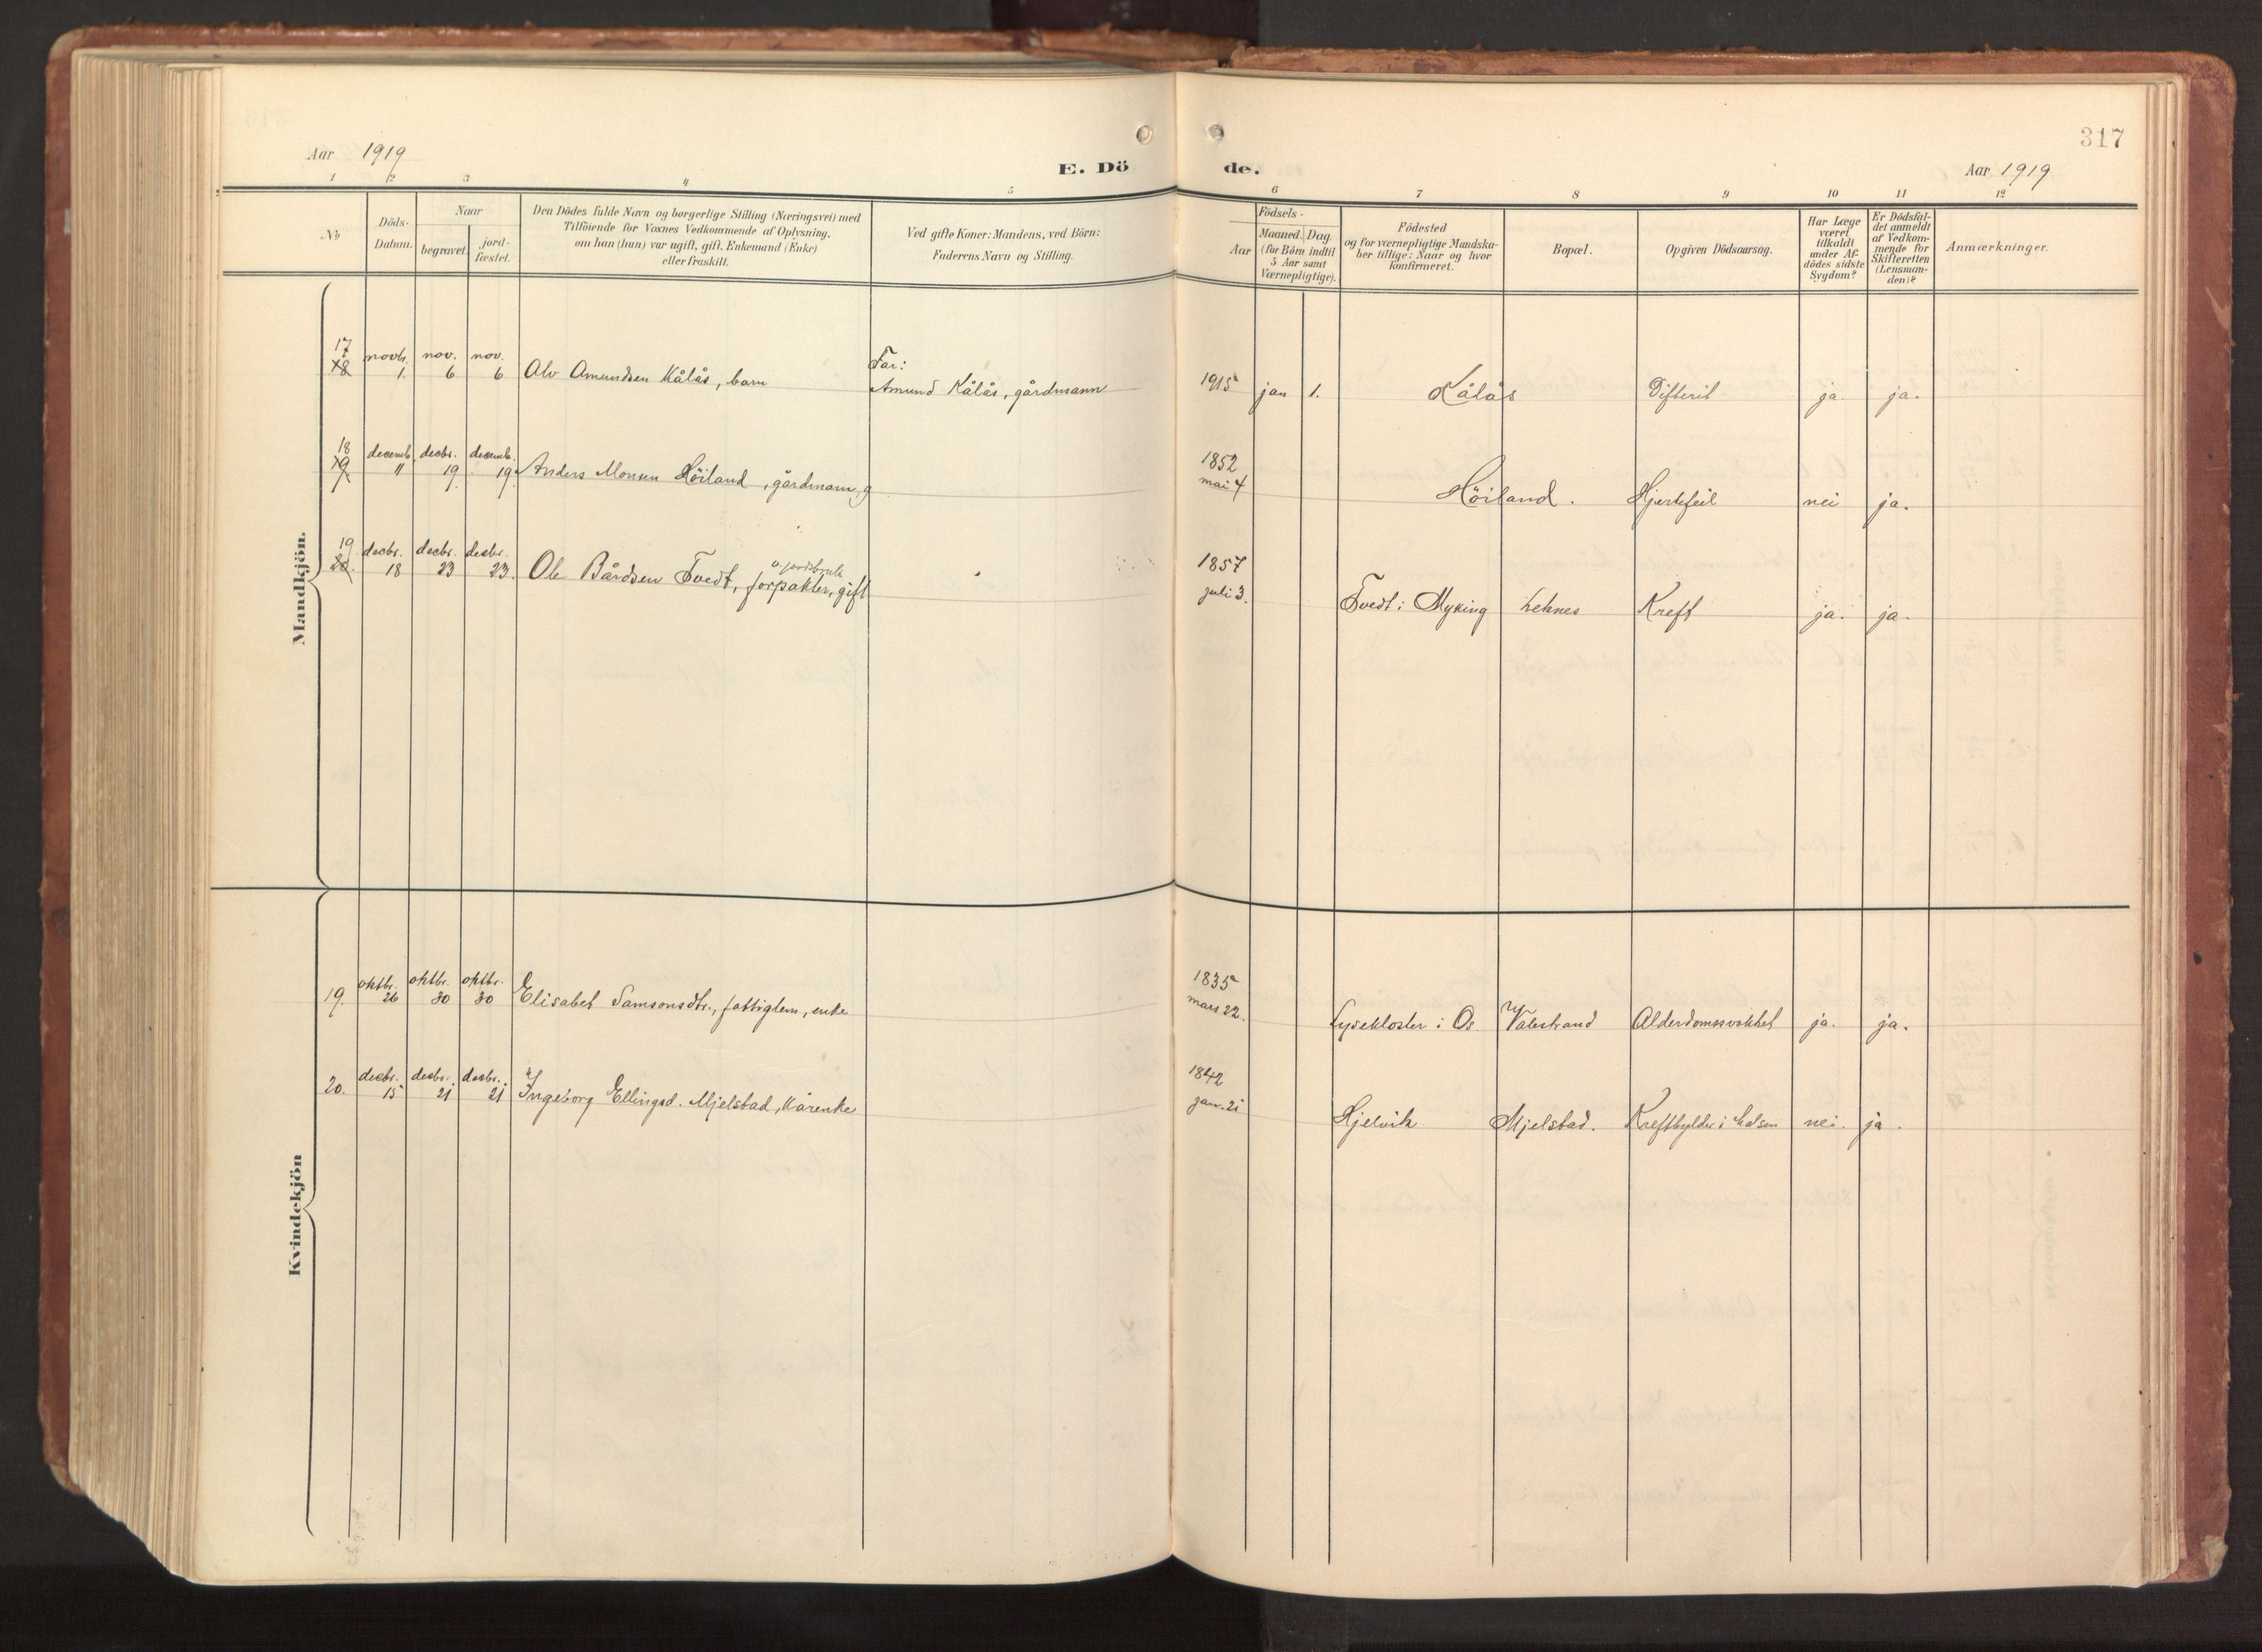 317
Aar 1919
E. Dö
de.
Aar 1919
1 2 3 4 5 6 7 8 9 10 11 12
No
Döds-
Datum.
Naar
begravet.
jord-
fæstet.
Den Dödes fulde Navn og borgerlige Stilling (Næringsvei) med
Tilföiende for Voxnes Vedkommende af Oplysning,
om han (hun) var ugift, gift, Enkemand (Enke)
eller fraskilt.
Ved gifte Koner: Mandens, ved Börn:
Faderens Navn og Stilling.
Födsels-
Aar
Maaned. Dag.
(for Börn indtil
5 Aar samt
Værnepligtige).
Födested
og for værnepligtige Mandska-
ber tillige: Naar og hvor
konfirmeret.
Bopæl.
Opgiven Dödsaarsag.
Har Læge
været
tilkaldt
under Af-
dödes sidste
Sygdom?
Er Dödsfal-
det anmeldt
af Vedkom-
mende for
Skifteretten
(Lensman-
den)?
Anmærkninger.
Mandkjön.
17
18 novbr. 1. nov. 6 nov. 6 Alv Amundsen Kålås, barn Far:
Amund Kålås, gårdmann 1915 jan 1. Kålås Difterit ja ja.
18
19 decemb. 11 decbr. 19 decemb. 19. Anders Monsen Höiland, gårdmann, g 1852
mai 4 Höiland. Hjertefeil nei ja.
19
20 decbr. 18 decbr. 23 decbr. 23. Ole Bårdsen Tvedt, forpakter, gift 1857
juli 3. Tvedt i Myking Leknes Kreft ja. ja.
Kvindekjön
19. oktbr. 26 oktbr. 30 oktbr. 30 Elisabet Samsonsdtr., fattiglem, enke 1835
mars 22. Lysekloster i Os Valestrand Alderdomssvakhet ja. ja.
20. decbr. 15 decbr. 21 decbr. 21 Ingeborg Ellingsd. Mjelstad, kårenke 1842
jan. 21 Hjelvik Mjelstad. nei. ja.